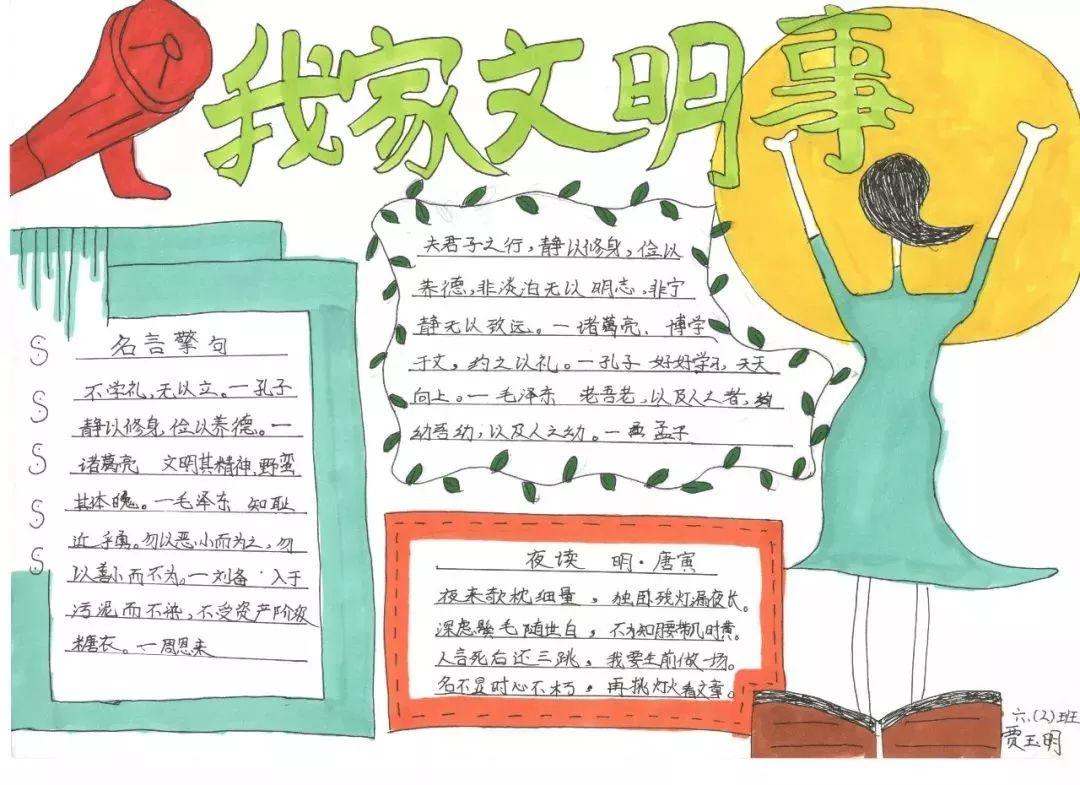 我家文明事
名言警句
不学礼，无以立。一孔子
静以修身，俭以养德。一
诸葛亮 文明其精神，野蛮
其体魄。一毛泽东 知耻
近乎勇。勿以恶小而为之，勿
以善小而不为。一刘备 入于
污泥而不染，不受资产阶级
糖衣。一周恩来
夫君子之行，静以修身，俭以
养德，非淡泊无以明志，非宁
静无以致远。一诸葛亮、博学
于文，约之以礼。一孔子 好好学习，天天
向上。一毛泽东 老吾老，以及人之老，
幼吾幼，以及人之幼。一 孟子
夜读 明·唐寅
夜来欹枕细量，独卧残灯漏夜长。
深虑鬓毛随世白，不知腰带几时黄。
人言死后还三跳，我要生前做一场。
名不显时心不朽，再挑灯火看文章。
六.(2)班
贾玉明